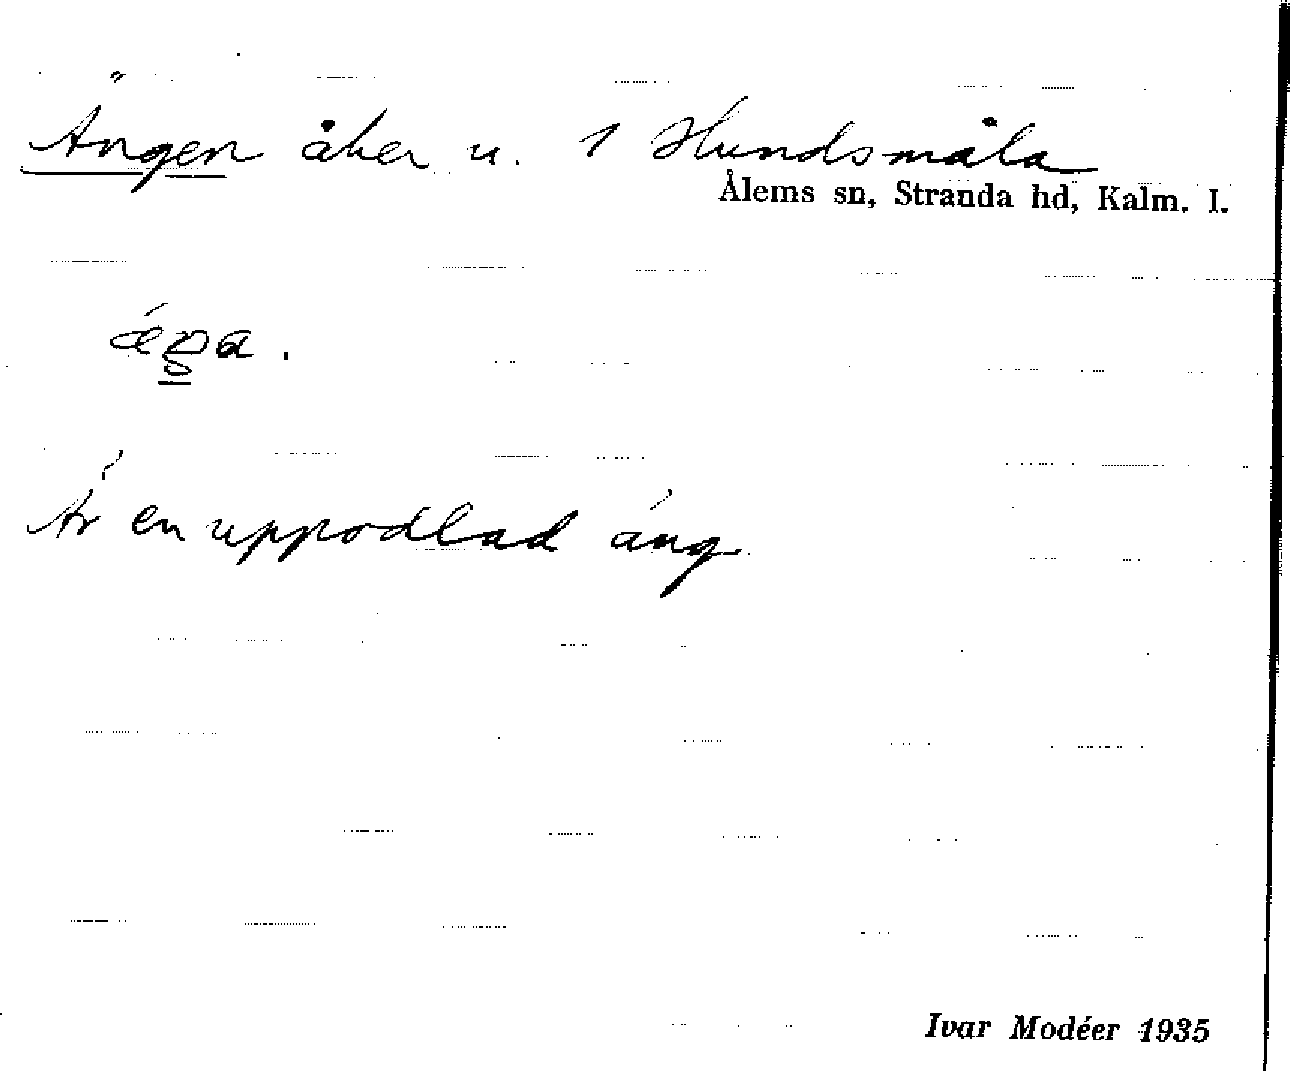 Ängen åker u. 1 Hundsmåla
Ålems sn, Stranda hd, Kalm. l.
Är en uppodlad äng
Ivar Modéer 1935